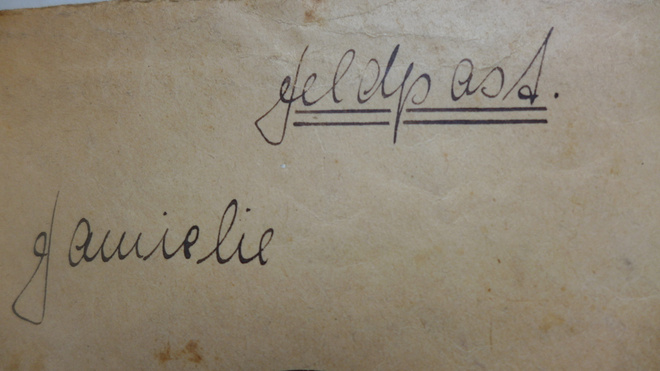 Feldpost.
Famielie